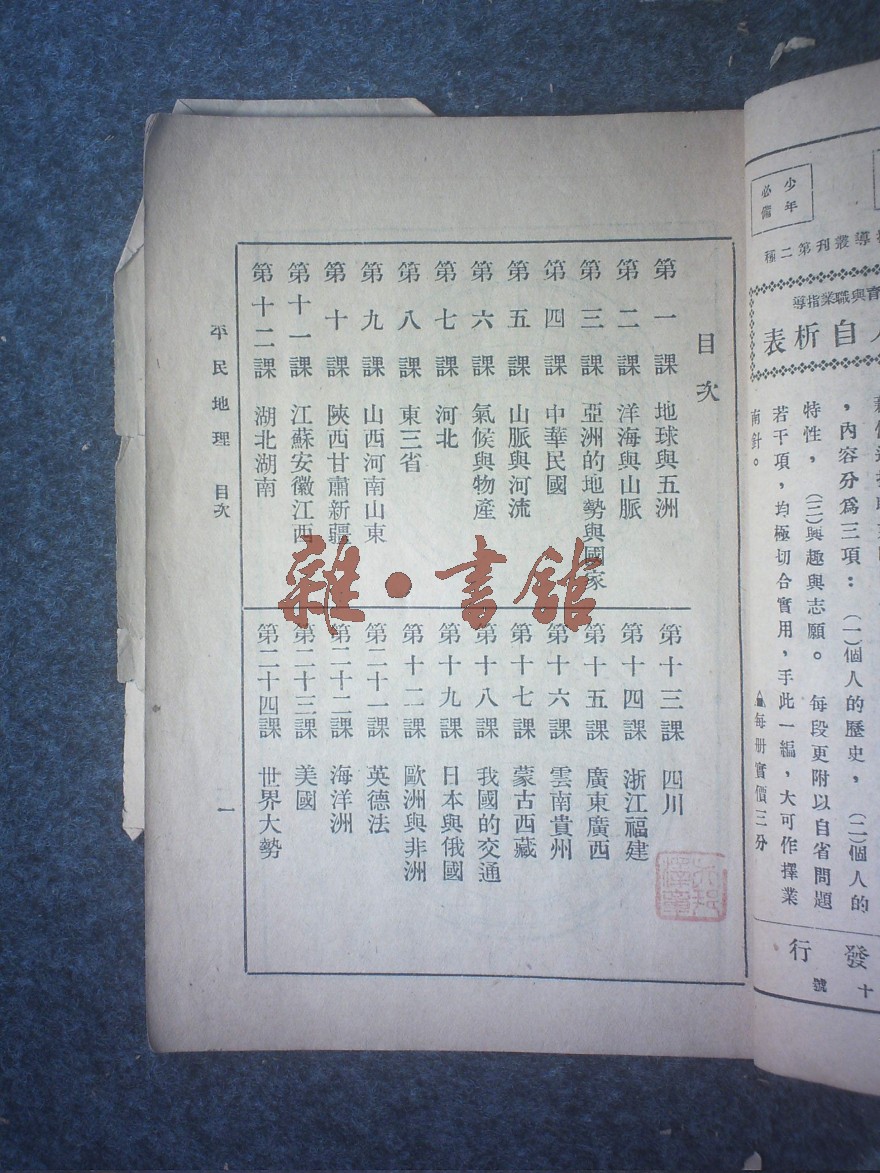 目次
第一課　地球與五洲
第二課　洋海與山脈
第三課　亞洲的地勢與國家
第四課　中華民國
第五課　山脈與河流
第六課　氣候與物產
第七課　河北
第八課　東三省
第九課　山西河南山東
第十課　陝西甘肅新疆
第十一課　江蘇安徽江西
第十二課　湖北湖南
第十三課　四川
第十四課　浙江福建
第十五課　廣東廣西
第十六課　雲南貴州
第十七課　蒙古西藏
第十八課　我國的交通
第十九課　日本與俄國
第十二課　歐洲與非洲
第二十一課　英德法
第二十二課　海洋洲
第二十三課　美國
第二十四課　世界大勢
平民地理　目次
一
雜·書館
少年
必備
導叢刊第二種
育與職業指導
人自析表
，內容分爲三項：（一）個人的歷史，（二）個人的
特性，（三）興趣與志願。每段更附以自省問題
若干項，均極切合實用，手此一編，大可作擇業
南針。
▲每册實價三分
發行
十號